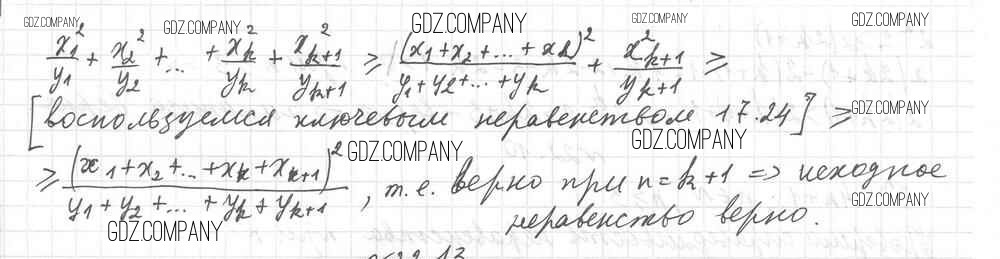 GDZ.COMPANY GDZ.COMPANY GDZ.COMPANY GDZ.COMPANY GDZ.COMPANY
x₁²/y₁ + x₂²/y₂ + ... + x_k²/y_k + x²_{k+1}/y_{k+1} ≥ (x₁+x₂+...+x_k)²/(y₁+y₂+...+y_k) + x²_{k+1}/y_{k+1} ≥
[воспользуемся ключевым неравенством 17.24] ≥
GDZ.COMPANY
GDZ.COMPANY GDZ.COMPANY
≥ (x₁+x₂+...+x_k+x_{k+1})²/(y₁+y₂+...+y_k+y_{k+1}), т.е. верно при n=k+1 => исходное
GDZ.COMPANY
неравенство верно.
GDZ.COMPANY